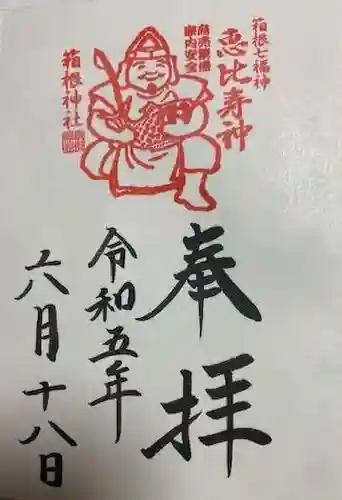 箱根七福神
恵比寿神
商売繁盛
家内安全
箱根神社
奉拝
令和五年
六月十八日